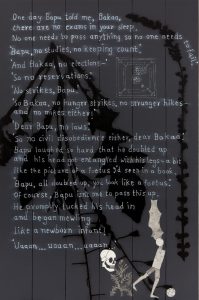 One day Bapu told me, Bakaa,
there are no exams in your sleep.
No one needs to pass anything so no one needs
to fail!
'Bapu, no studies, no keeping count.'
'And Bakaa, no elections—'
'So no reservations.'
'No strikes, Bapu.'
'So Bakaa, no hunger strikes, no stronger hikes—
and no mikes either!'
'Dear Bapu, no laws.'
'So no civil disobedience either, dear Bakaa!'
Bapu laughed so hard that he doubled up
and his head got entangled with his legs—a bit
like the picture of a foetus I'd seen in a book.
'Bapu, all doubled up, you look like a foetus.'
Of course, Bapu isn't one to pass this up.
He promptly tucked his head in
and began mewling
like a newborn infant!
'Uaaan...uaaan...uaaan